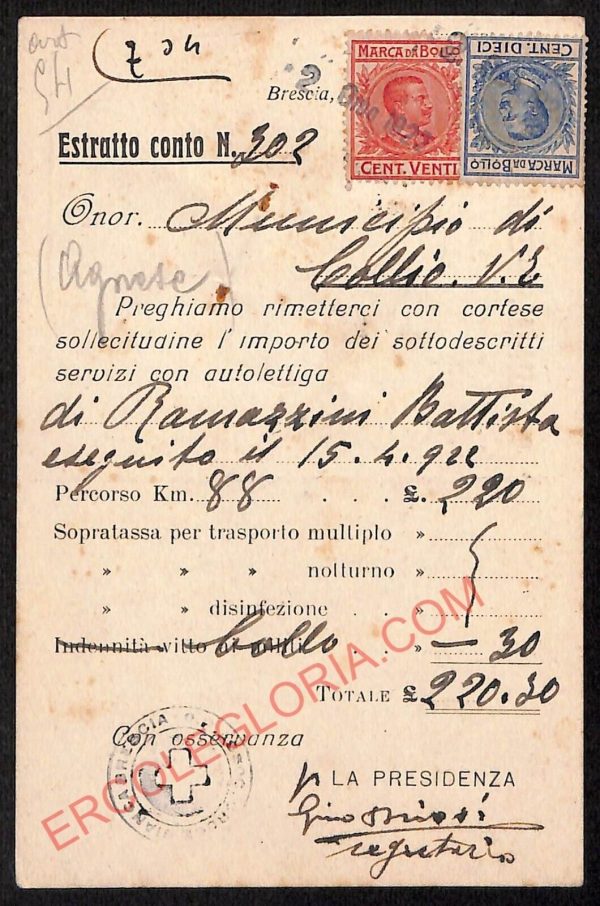 704
MARCA DA BOLLO
CENT. VENTI
MARCA DA BOLLO
CENT. DIECI
Brescia, 2
Estratto conto N. 302
Onor. Municipio di
Collio. V. T
(Agnese)
Preghiamo rimetterci con cortese
sollecitudine l' importo dei sottodescritti
servizi con autolettiga
di Ramazzini Battista
eseguito il 15.4.922
Percorso Km. 88 . . . £. 220
Sopratassa per trasporto multiplo »
» » » notturno »
» » disinfezione . . »
Indennità vitto ai militi Bollo . . — 30
TOTALE £ 220.30
Con osservanza
BRESCIA
LA PRESIDENZA
segretario
ERCOLEGLORIA.COM